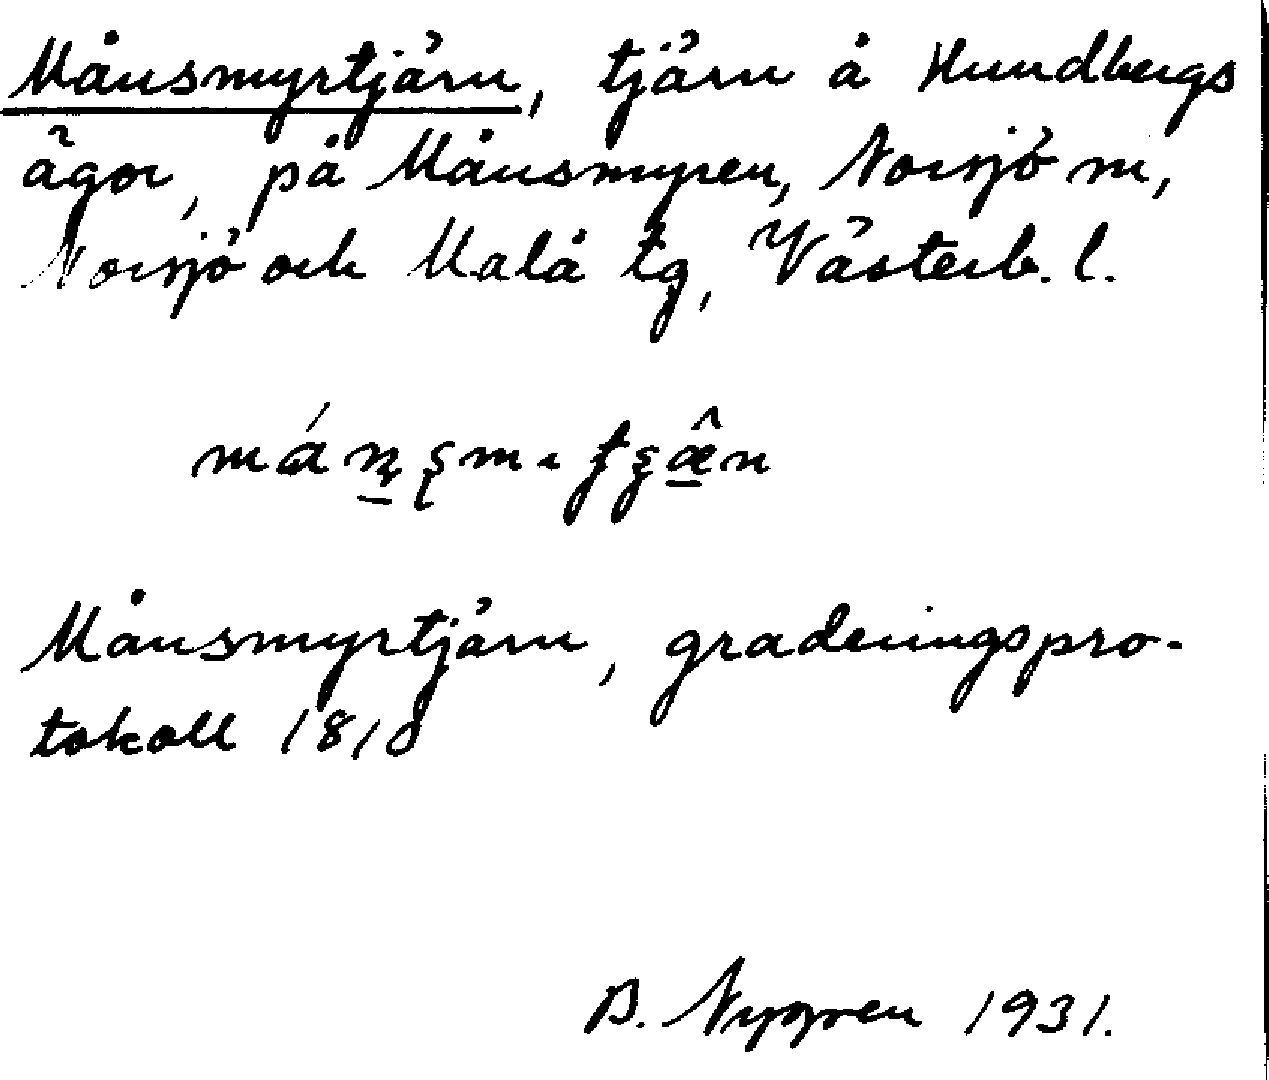 Månsmyrtjärn, tjärn å Hundbergs
ägor, på Månsmyren, Norsjö sn,
Norsjö och Malå tg, Västerb. l.
Månsmyrtjärn, graderingspro-
tokoll 1818
B. Nygren 1931.